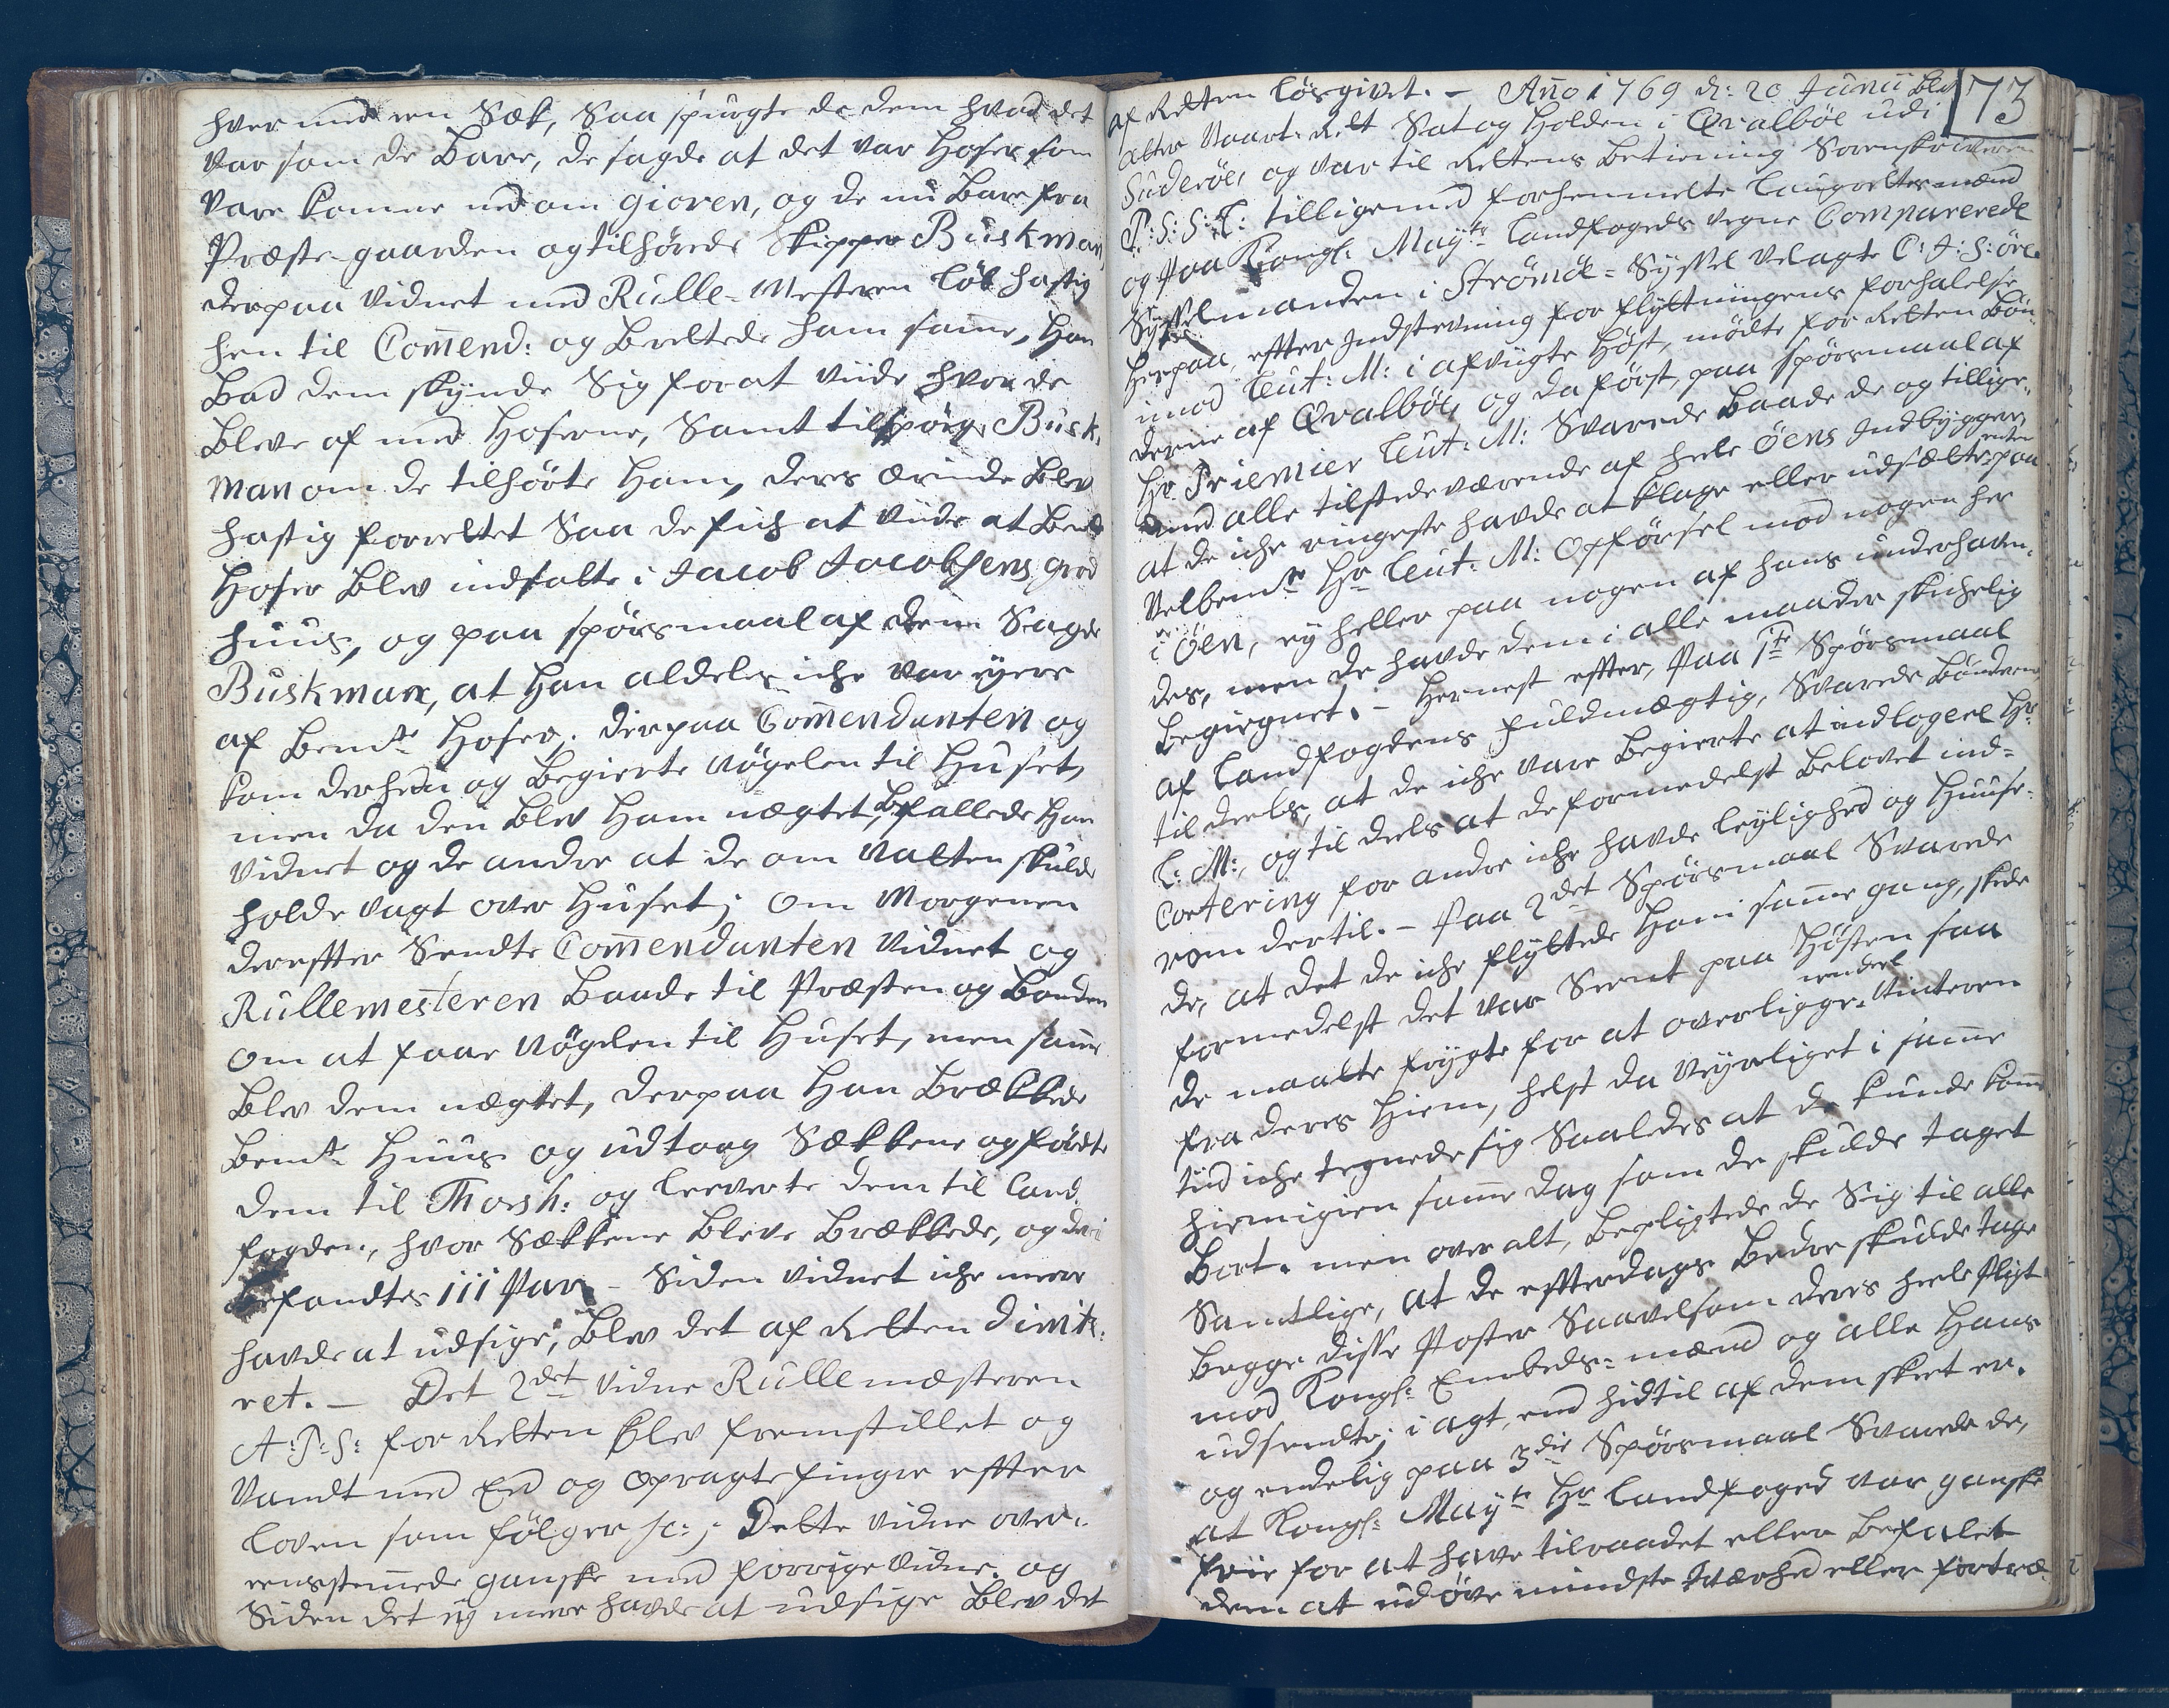 hver med een Sæk, Saa spurgte de dem hvad det
var som de Bare, de sagde at det var Hoser som
vare komne ned om gioren, og de nu Bare fra
Præste-gaarden og tilhørede Skipper Buskman,
derpaa Vidnet med Rulle-Mesteren løb hastig
hen til Com̄end: og Berettede ham sam̄e, Han
Bad dem skynde Sig for at viide hvor de
Bleve af med Hoserne, Samt tilspørge Busk-
man om de tilhørte Ham, deres ærinde Blev
hastig forrettet Saa de fich at viide at Bemte
Hoser Blev indsatte i Jacob Jacobsens grod
huus, og paa spørsmaal af dem Sagde
Buskman, at Han aldeles iche var eyere
af Bemte Hoser. derpaa Com̄endanten og
kom derhen og Begierte Nøgelen til Huset,
men da den Blev Ham nægtet, Befallede Han
Vidnet og de andre at de om Natten skulde
holde vagt over Huset; om Morgenen
derefter Sendte Com̄endanten Vidnet og
Rullemesteren Baade til Præsten og Bonden
om at faae Nøgelen til Huset, men sam̄e
Blev dem nægtet, derpaa Han Brækkede
Bemte Huus og udtoeg Sækkene og førdte
dem til Thorsh: og leverte dem til Land-
fogden, hvor Sækkene Bleve Brækkede, og deri
Befandtes 111 Par. – Siden Vidnet iche meere
havde at udsige, Blev det af Retten dimit-
ret. – Det 2det Vidne Rullemæsteren
A: P: S: for Retten Blev fremstillet og
Vandt med Eed og opragte finger effter
Loven som følger sc:; Dette Vidne over-
eensstem̄ede ganske med forrige Vidne. og
Siden det ey meer havde at udsige Blev det
73
af Retten løsgivet. – An̄o 1769 d: 20 Junii Blev
atter Vaart-Ret Sat og Holden i Qvalbøe udi
Suderøe, og var til Rettens Betiening Sorenskriveren
P: S: S: T: tilligemed forhenmelte Laugrettesmænd
og paa Kongl: Mayts Landfogeds vegne Comparerede
Sysselmanden i Strømøe-Syssel velagte C: J: S: Øre.
Herpaa, effter Indstevning for flyttningens forhalelse
imod Leut: M: i afvigte Høst, mødte for Retten Bøn-
derne af Qvalbøe, og da først, paa spørsmaal af
Hr Priemier Leut: M: Svarede Baade de og tillige-
med alle tilstedeværende af heele Øens Indbyggere
at de iche ringeste havde at klage eller udsætte enten paa
Velbemte Hr Leut: M: Opførsel mod nogen her
i Øen, ey heller paa nogen af hans underhaven-
des, men de havde dem i alle maader skichelig
Begiegnet. – Hernest effter, paa 1te Spørsmaal
af Landfogdens fuldmægtig, Svarede Bønderne
til deels, at de iche vare Begierte at indlogere Hr
L: M:, og til deels at de formedelst Belovet ind-
Qvartering for andre iche havde leylighed og Huuse-
rom dertil. – Paa 2det Spørsmaal Svarede
de, at det de iche flyttede Ham sam̄e gang, skede
formedelst det var Seent paa Høsten saa
de maatte frygte for at overligge eendeel Vinteren
fra deres Hiem, helst da Veyrliget i sam̄e
tiid iche tegnede sig Saaledes at de kunde kom̄e
hiemigien sam̄e dag som de skulde taget
Bort. men over alt, Bepligtede de Sig til alle
Samtlige, at de effterdags Bedre skulde tage
Begge disse Poster Saavelsom deres heele Pligt
mod Kongl: Embeds-mænd og alle Hans
udsendte, i agt, end hidtil af dem skeet er.
og endelig paa 3die Spørsmaal Svarede de,
at Kongl: Mayts Hr Landfoged var ganske
frie for at have tilraadet eller Befalet
dem at udøve mindste tværhed eller fortræ-